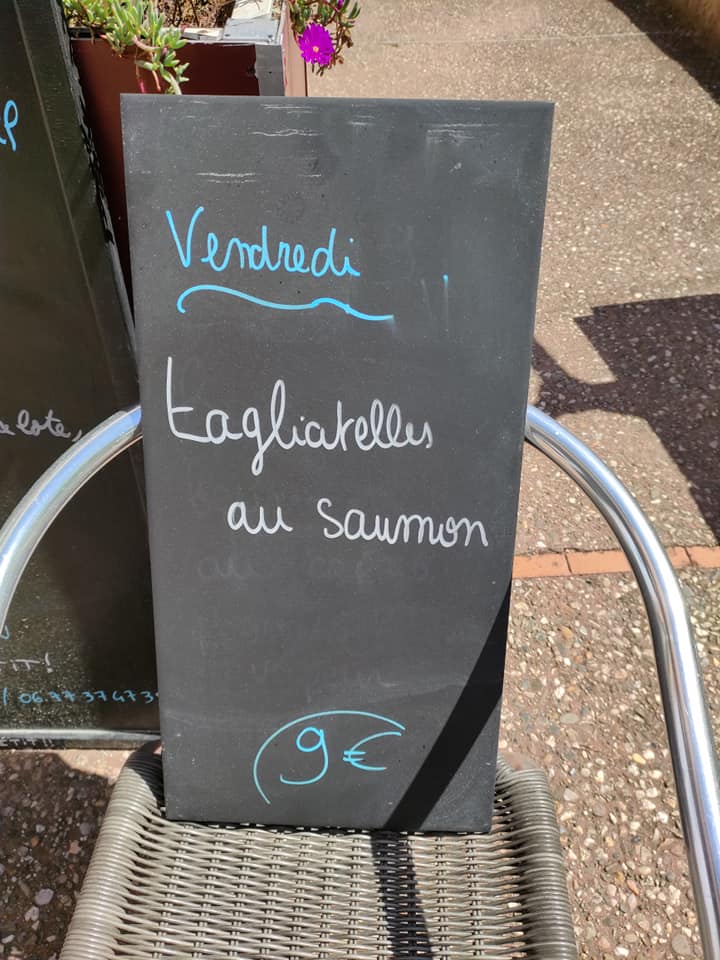 Vendredi
tagliatelles
au saumon
9 €
lote,
TIT!
06.77 37 47 3